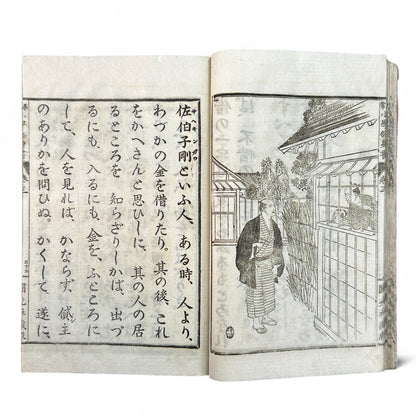 佐伯子剛といふ人、ある時、人より、
わづかの金を借りたり。其の後、これ
をかへさんと思ひしに、其の人の居
るところを知らざりしかば、出づ
るにも、入るにも、金を、ふところに
して、人を見れば、かならず、債主
のありかを問ひぬ。かくして、遂に、